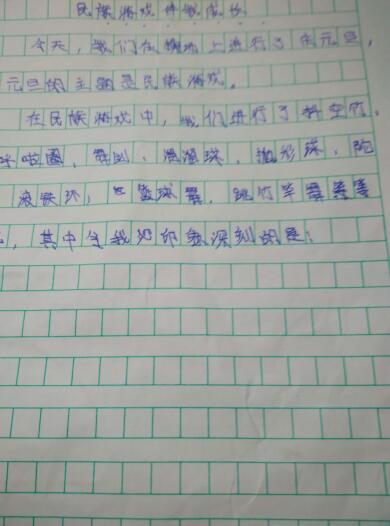 民族游戏伴我成长
今天，我们在操场上进行了庆元旦，
元旦的主题是民族游戏。
在民族游戏中，我们进行了抖空竹，
呼啦圈，舞，溜溜球，抛彩球，陀
滚铁环，篮球，跳竹竿等等
，其中令我印象深刻的是：